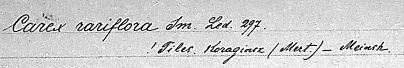 Carex rariflora Sm. Led. 297.
! Tiles. Koraginsk (Mert.) – Meinsh.